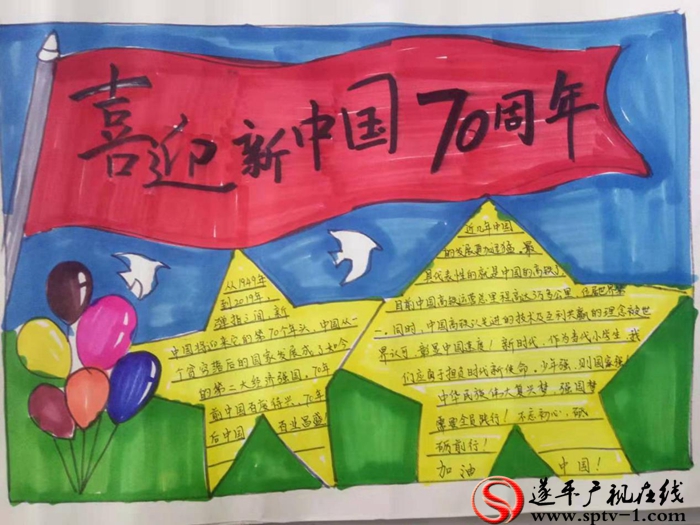 喜迎新中国70周年
从1949年
到2019年,
弹指之间,新
中国将迎来它的第70个年头,中国从一
个贫穷落后的国家发展成了如今
的第二大经济强国,70年
前中国百废待兴,70年
后中国 百业昌盛!
近几年中国
的发展更加迅猛,最
具代表性的就是中国的高铁了,
目前中国高铁运营总里程高达2.5多公里,位居世界第
一,同时,中国高铁以先进的技术及互利共赢的理念被世
界认可,彰显中国速度!新时代,作为当代小学生,我
们应勇于担负时代新使命,少年强,则国家强!
中华民族伟大复兴梦、强国梦
需要全员践行!不忘初心,砥
砺前行!
加油 中国!
遂平广视在线
www.sptv-1.com